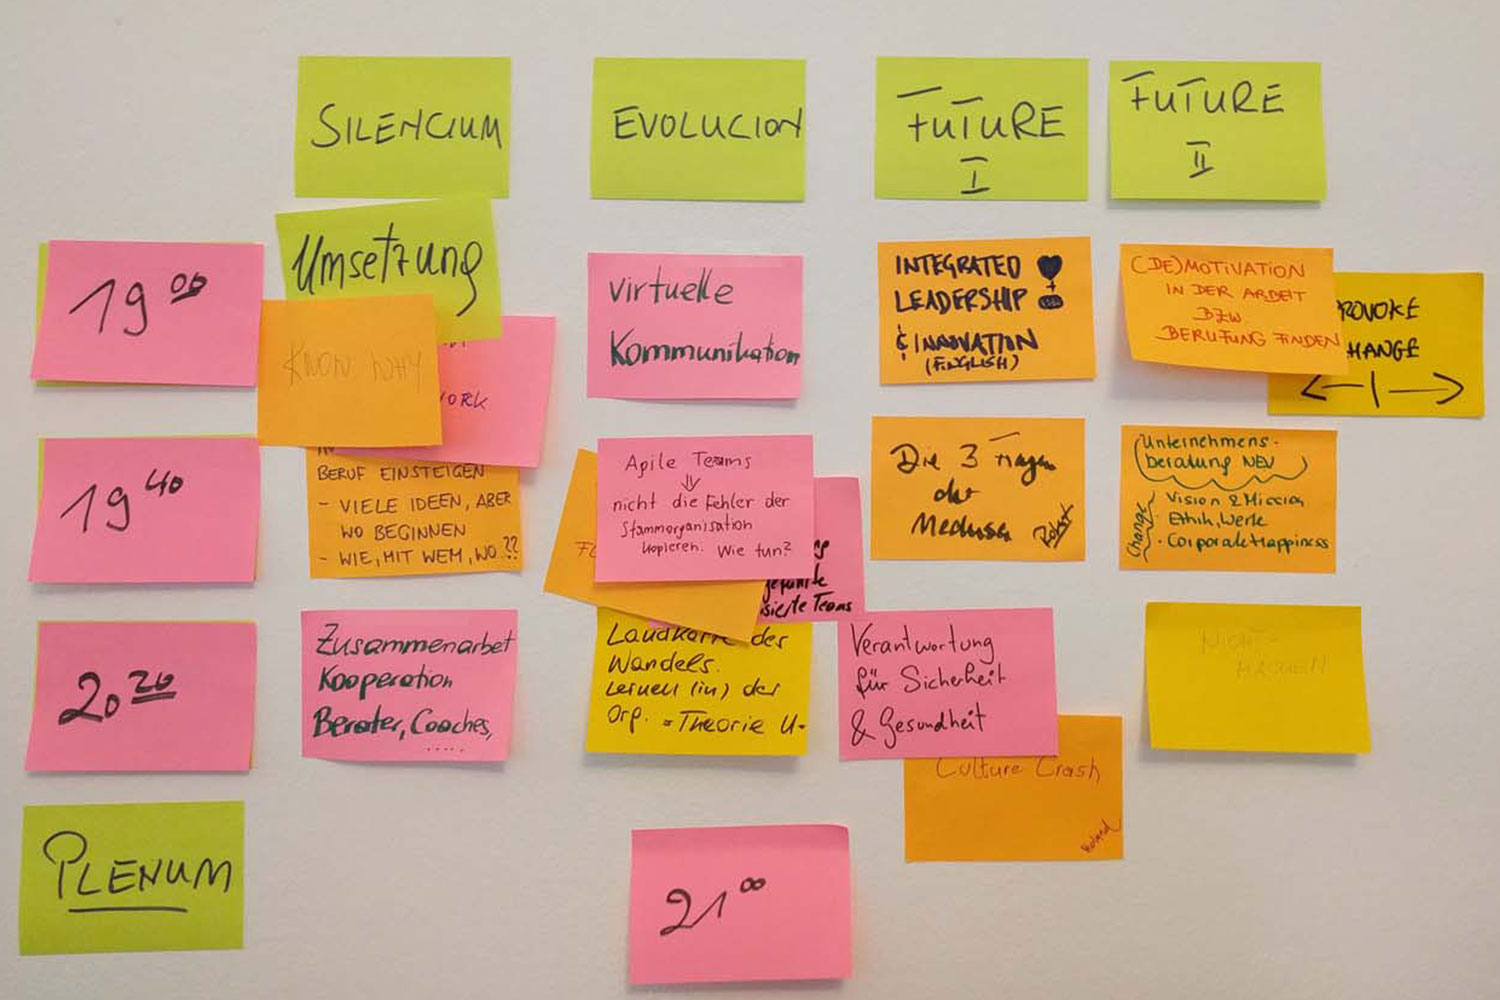 SILENCIUM
EVOLUCION
FUTURE
I
FUTURE
II
19 00
Umsetzung
KNOW WHY
ORK
virtuelle
Kommunikation
INTEGRATED
LEADERSHIP
& INNOVATION
(FINGLISH)
(DE)MOTIVATION
IN DER ARBEIT
BZW.
BERUFUNG FINDEN
ROVOKE
HANGE
19 40
BERUF EINSTEIGEN
- VIELE IDEEN, ABER
WO BEGINNEN
- WIE, MIT WEM, WO ??
Agile Teams
nicht die Fehler der
Stammorganisation
kopieren. Wie tun?
sierte Teams
Die 3 Fragen
der
Medusa
Unternehmens-
beratung NEU
Change
· Vision & Mission
· Ethik, Werte
· Corporate Happiness
20 20
Zusammenarbeit
Kooperation
Berater, Coaches,
.....
Landkarte des
Wandels.
Lernen (in) der
Org. = Theorie U.
Verantwortung
für Sicherheit
& Gesundheit
Culture Crash
Roland
PLENUM
21 00